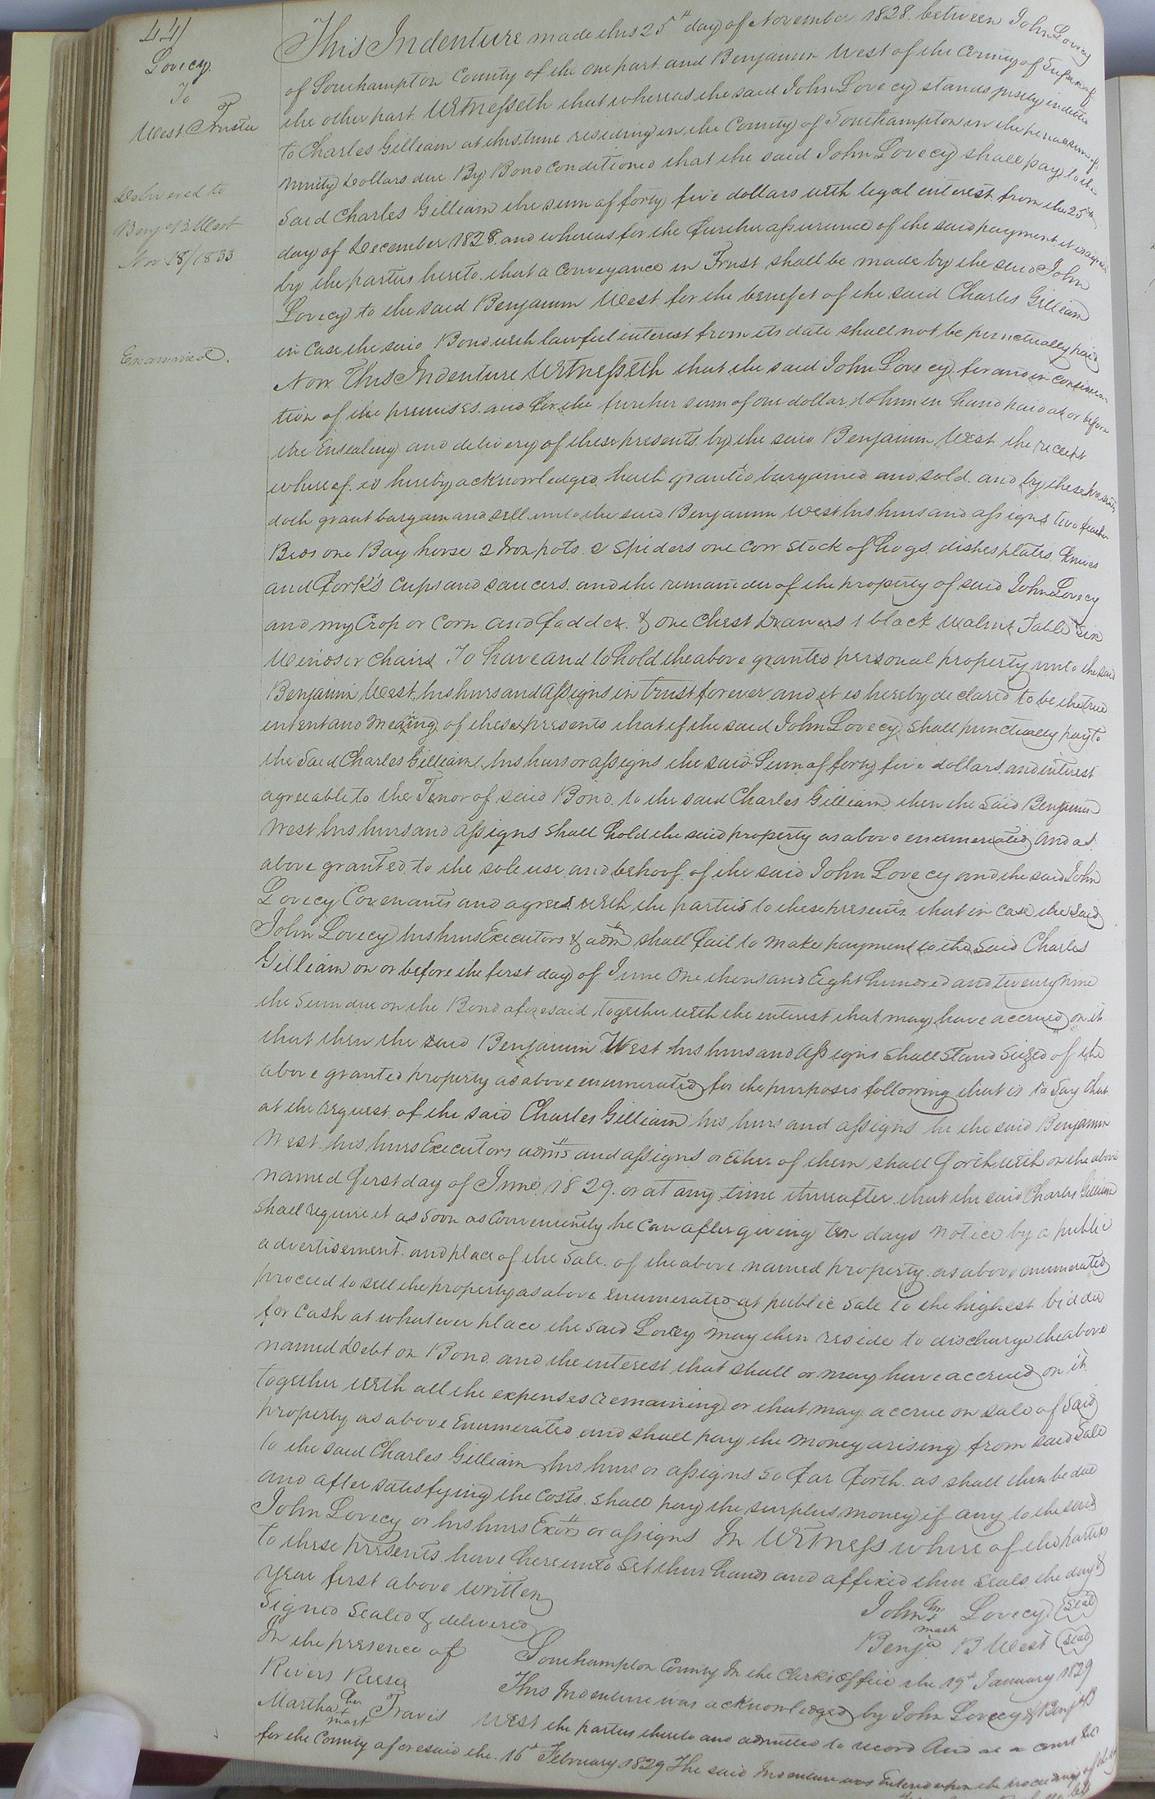 441
Lovecy
To
West Trustee
Delivered to
Benj B West
Nov 18/1833
Examined.
This Indenture made this 25th day of November 1828. between John Lovecy
of Southampton County of the one part and Benjamin West of the County of
the other part Witnesseth that whereas the said John Lovecy stands justly indebted
to Charles Gilliam at this time residing in the County of Southampton in the penal sum of
ninety Dollars due By Bond conditioned that the said John Lovecy shall pay to the
said Charles Gilliam the sum of forty five dollars with legal interest from the 25th
day of December 1828. and whereas for the further assurance of the said payment it is agreed
by the parties hereto. that a conveyance in Trust shall be made by the said John
Lovecy to the said Benjamin West for the benefit of the said Charles Gilliam
in case the said Bond with lawful interest from its date shall not be punctually paid
Now This Indenture Witnesseth that the said John Lovecy for and in considera
tion of the premises. and for the further sum of one dollar to him in hand paid at or before
the Ensealing and delivery of these presents by the said Benjamin West the receipt
whereof is hereby acknowledged hath granted bargained and sold. and by these presents
doth grant bargain and sell unto the said Benjamin West his heirs and assigns two feather
Beds one Bay horse 2 Iron pots 2 Spiders one cow Stock of hogs. dishes plates. knives
and forks cups and saucers. and the remainder of the property of said John Lovecy
and my Crop or Corn and fodder. & one Chest Drawers 1 black walnut Table Six
Windsor Chairs To have and to hold the above granted personal property unto the said
Benjamin West, his heirs and assigns in trust forever and it is hereby declared to be the true
intent and meaning of these presents that if the said John Lovecy shall punctually pay to
the Said Charles Gilliam his heirs or assigns the said Sum of forty five dollars and interest
agreeable to the Tenor of said Bond. to the said Charles Gilliam then the Said Benjamin
West his heirs and assigns shall hold the said property as above enumerated and as
above granted to the sole use and behoof of the said John Lovecy and the said John
Lovecy Covenants and agrees with the parties to these presents that in case the said
John Lovecy his heirs Executors & adms shall fail to make payment to the Said Charles
Gilliam on or before the first day of June One thousand Eight hundred and twenty nine
the Sum due on the Bond aforesaid together with the interest that may have accrued on it
that then the said Benjamin West his heirs and assigns shall Stand Seized of the
above granted property as above enumerated for the purposes following that is to say that
at the request of the said Charles Gilliam his heirs and assigns he the said Benjamin
West his heirs Executors adms and assigns or either of them shall forthwith on the above
named first day of June 1829. or at any time thereafter that the said Charles Gilliam
shall require it as Soon as Conveniently he can after giving ten days notice by a public
advertisement. and place of the Sale. of the above named property. as above enumerated
proceed to sell the property as above enumerated at public Sale to the highest bidder
for Cash at whatever place the said Lovecy may then reside to discharge the above
named debt on Bond and the interest that shall or may have accrued on it.
together with all the expenses remaining or that may accrue on sale of Said
property as above Enumerated and shall pay the money arising from said Sale
to the said Charles Gilliam his heirs or assigns So far forth. as shall then be due
and after satisfying the costs. shall pay the surplus money if any to the said
John Lovecy or his heirs Exors or assigns In Witness whereof the parties
to these presents have hereunto Set their hands and affixed their seals the day &
year first above written
Signed Sealed & delivered
In the presence of
Rivers Reese
Martha her mark Travis
John his mark Lovecy Seal
Benja B West Seal
Southampton County In the Clerks Office the 19th January 1829
This Indenture was acknowledged by John Lovecy & Benj B
West the parties thereto and admitted to record And at a court
for the County aforesaid the. 16th February 1829 The said Indenture was Entered upon the proceedings of